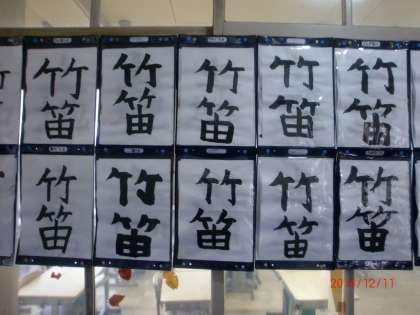 竹笛
竹笛
竹笛
竹笛
竹笛
竹笛
竹笛
竹笛
竹笛
竹笛